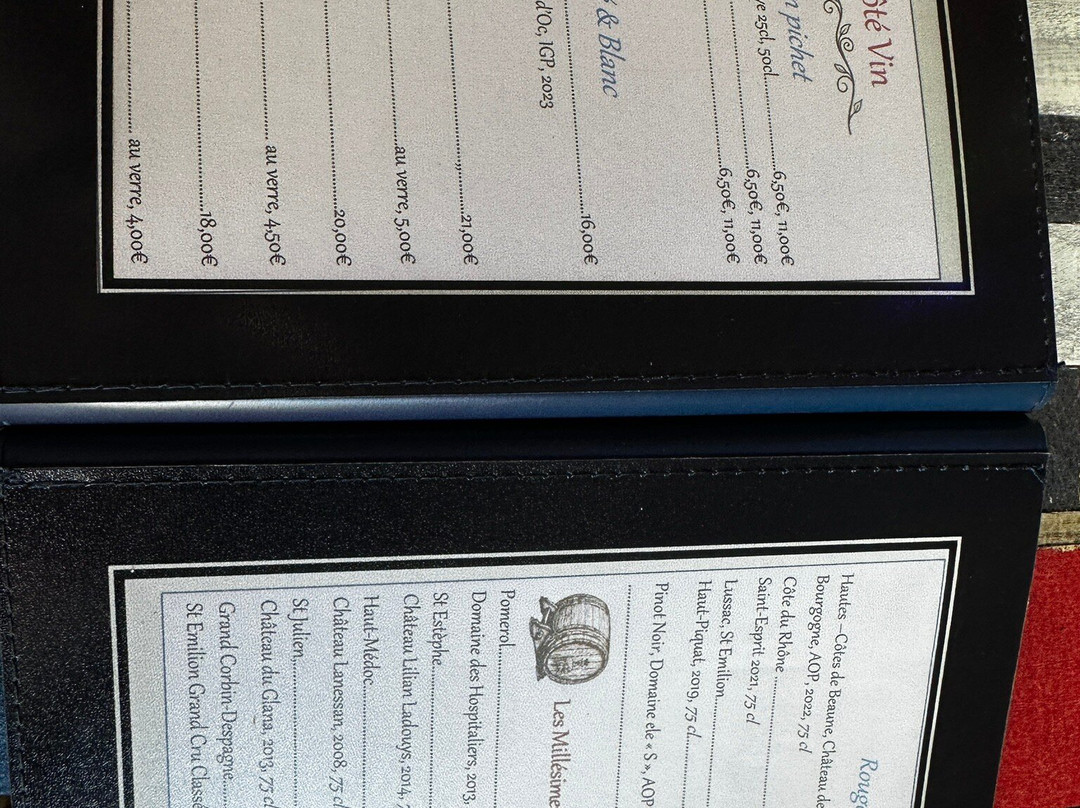 ôté Vin
pichet
25cl, 50cl......6,50€, 11,00€
......6,50€, 11,00€
......6,50€, 11,00€
& Blanc
......16,00€
d'Oc, IGP, 2023
......21,00€
......au verre, 5,00€
......20,00€
...... au verre, 4,50€
......18,00€
...... au verre, 4,00€
Roug
Hautes –Côtes de Beaune, Château de
Bourgogne, AOP, 2022, 75 cl
Côte du Rhône ......
Saint-Esprit 2021, 75 cl
Lussac, St Emilion......
Haut-Piquat, 2019, 75 cl......
Pinot Noir, Domaine ele « S », AOP
......
Les Millésime
Pomerol......
Domaine des Hospitaliers, 2013,
St Estèphe......
Château Lilian Ladouys, 2014,
Haut-Médoc......
Château Lanessan, 2008, 75 cl
St Julien......
Château du Glana, 2013, 75 cl
Grand Corbin-Despagne......
St Emilion Grand Cru Classé